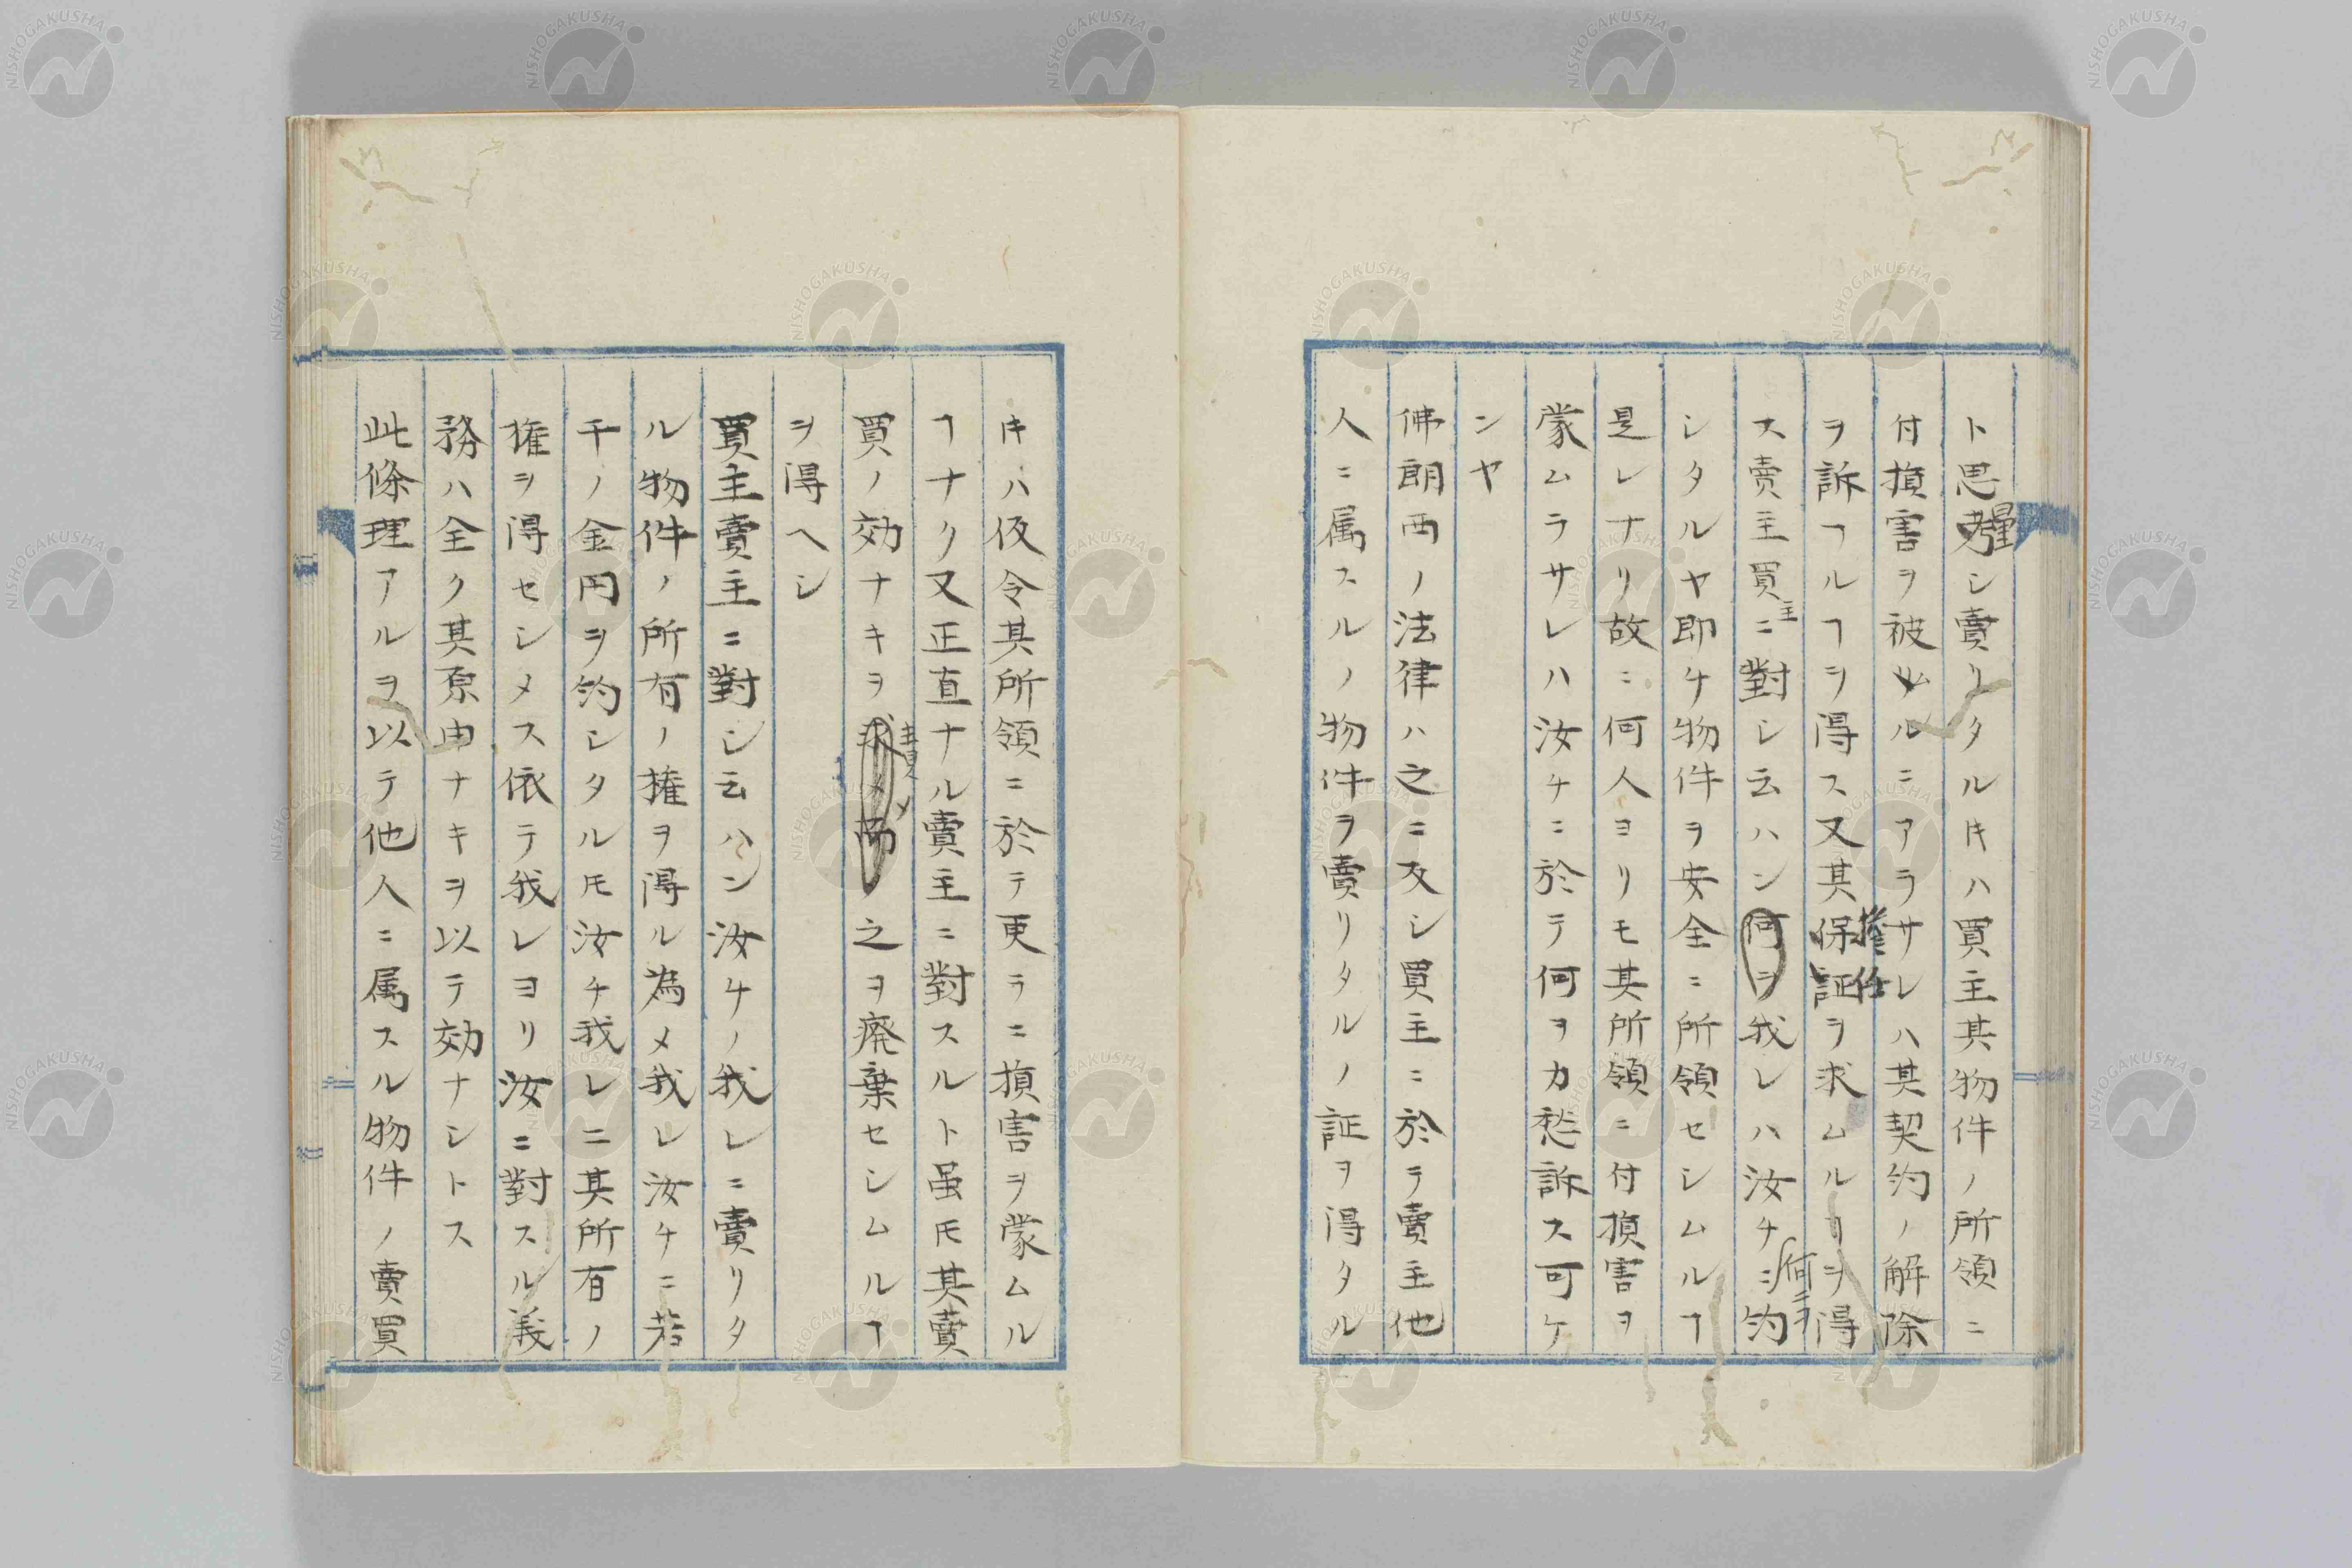 ト思量シ賣リタルキハ買主其物件ノ所領ニ
付損害ヲ被ムルニアラサレハ其契約ノ解除
ヲ訴フルヿヲ得ス又其保証擔任ヲ求ムルヿヲ得
ス賣主買主ニ對シ云ハン何ヲ我レハ汝チニ何ヲ約
シタルヤ即チ物件ヲ安全ニ所領セシムルヿ
是レナリ故ニ何人ヨリモ其所領ニ付損害ヲ
蒙ムラサレハ汝チニ於テ何ヲカ愁訴ス可ケ
ンヤ
佛朗西ノ法律ハ之ニ反シ買主ニ於テ賣主他
人ニ属スルノ物件ヲ賣リタルノ証ヲ得タル
キハ仮令其所領ニ於テ更ラニ損害ヲ蒙ムル
ヿナク又正直ナル賣主ニ對スルト虽𪜈其賣
買ノ効ナキヲ責メ之ヲ廃棄セシムルヿ
ヲ得ヘシ
買主賣主ニ對シ云ハン汝チノ我レニ賣リタ
ル物件ノ所有ノ権ヲ得ル為メ我レ汝チニ若
干ノ金円ヲ約シタル𪜈汝チ我レニ其所有ノ
権ヲ得セシメス依テ我レヨリ汝ニ對スル義
務ハ全ク其原由ナキヲ以テ効ナシトス
此條理アルヲ以テ他人ニ属スル物件ノ賣買
NISHOGAKUSHA